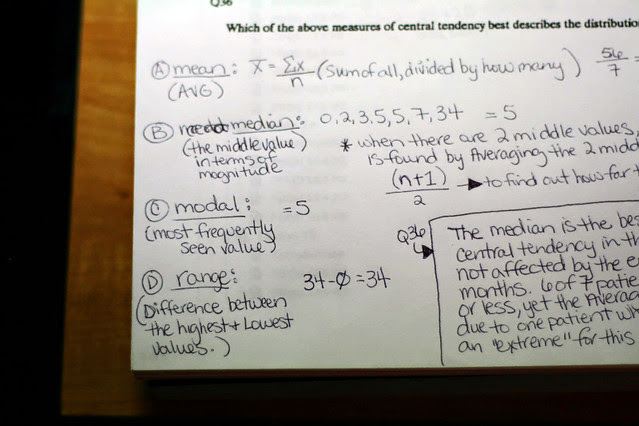 Q36
Which of the above measures of central tendency best describes the distributio
A mean: x̄ = Σx/n (sum of all, divided by how many) 56/7 =
(AVG)
B median: 0, 2, 3.5, 5, 7, 34 = 5
(the middle value in terms of magnitude
* when there are 2 middle values,
is found by Averaging the 2 midd
(n+1)/2 → to find out how far t
C modal: = 5
(most frequently seen value)
Q36
The median is the bes
central tendency in th
not affected by the e
months. 6 of 7 patie
or less, yet the Averag
due to one patient wh
an "extreme" for this
D range: 34-0=34
(Difference between
the highest + Lowest
values.)